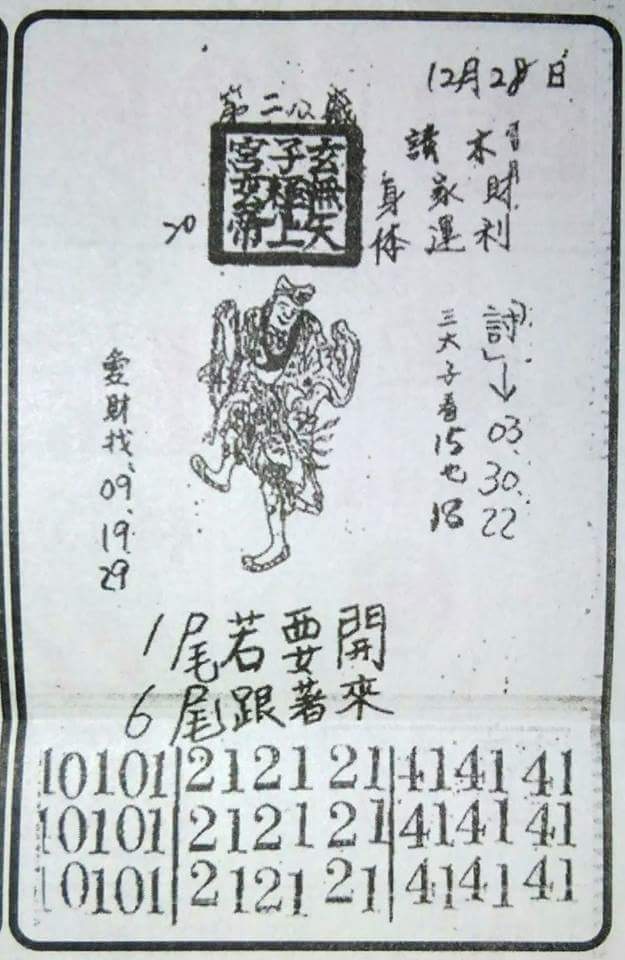 12月28日
第二公籤
玄無天
子極上
宮玄帝
20
本財利
請家運
身体
討」→03.30.22
三太子看15也18
愛財找、09、19、29
1尾若要開
6尾跟著來
10101 | 2121 21 | 4141 41
10101 | 2121 21 | 4141 41
10101 | 2121 21 | 4141 41